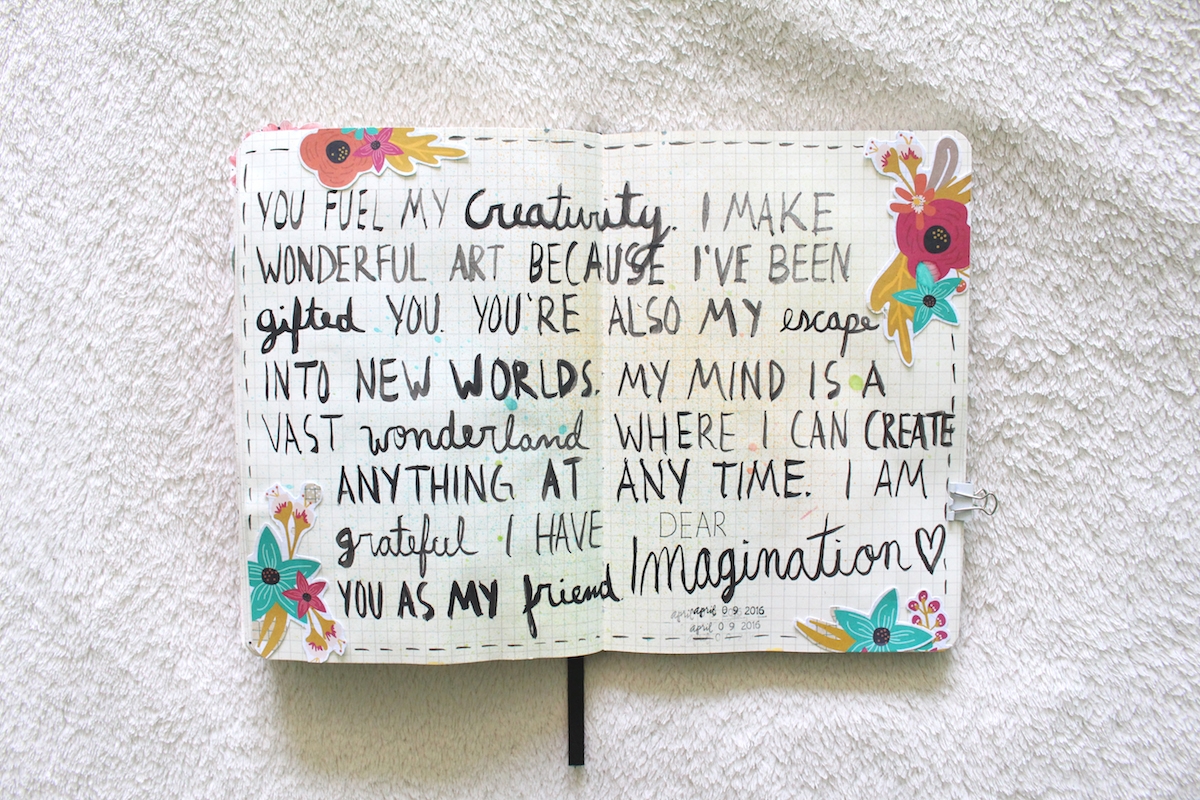 YOU FUEL MY Creativity. I MAKE
WONDERFUL ART BECAUSE I'VE BEEN
gifted YOU. YOU'RE ALSO MY escape
INTO NEW WORLDS. MY MIND IS A
VAST wonderland WHERE I CAN CREATE
ANYTHING AT ANY TIME. I AM
grateful I HAVE DEAR
YOU AS MY friend Imagination
april april 09 2016
april 09 2016